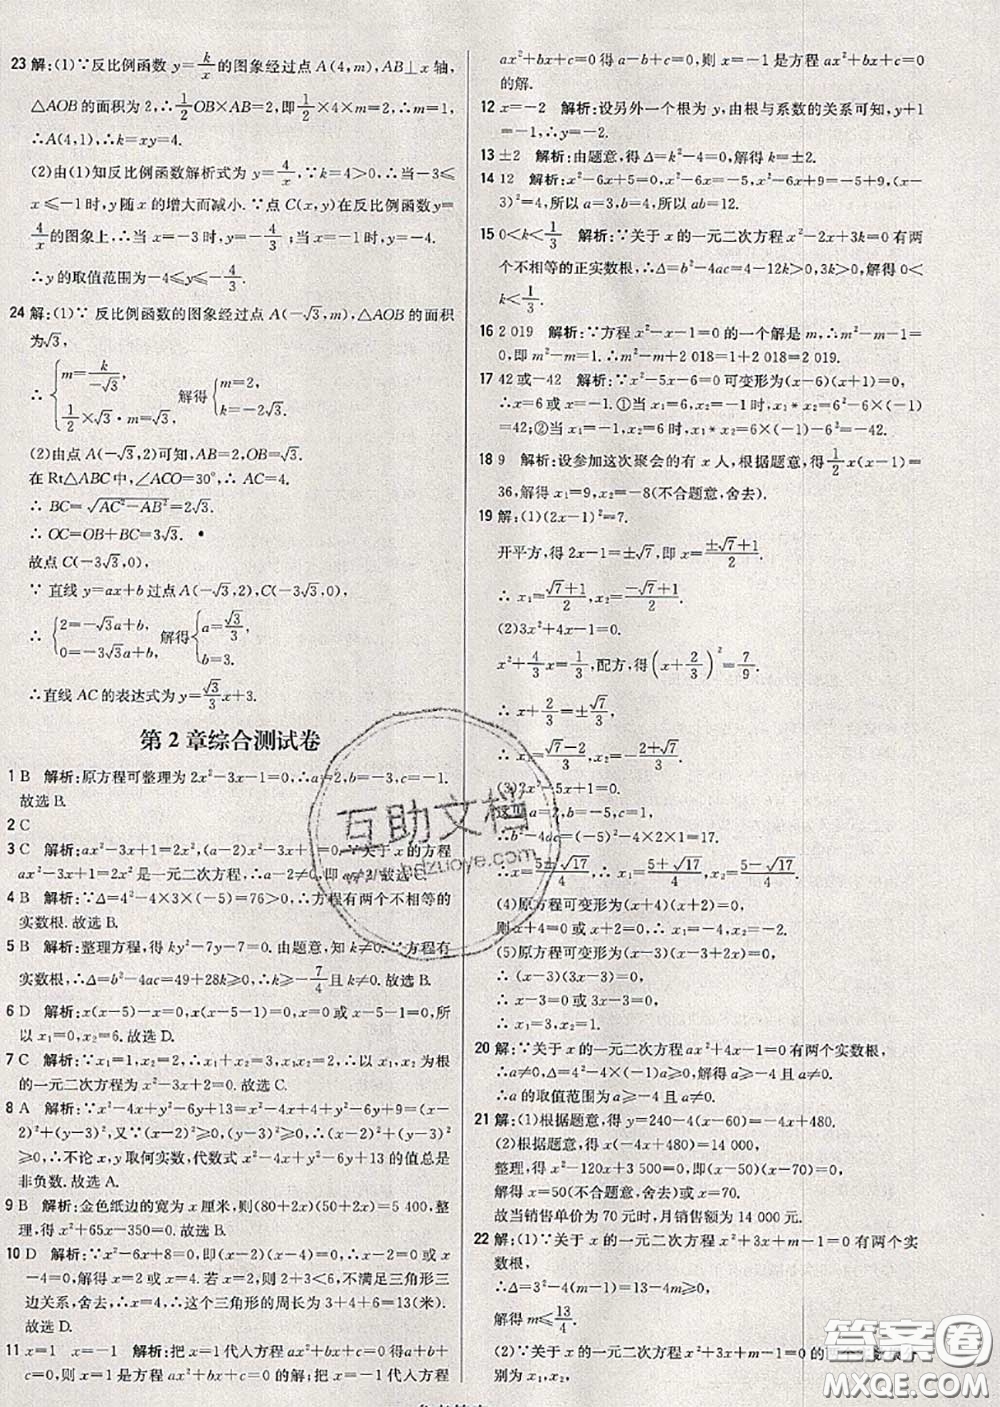 23 解:(1)∵反比例函数 y=k/x 的图象经过点 A(4,m),AB⊥x 轴,
△AOB 的面积为 2,∴1/2 OB×AB=2,即 1/2×4×m=2,∴m=1,
∴A(4,1),∴k=xy=4.
(2)由(1)知反比例函数解析式为 y=4/x,∵k=4>0,∴当-3≤
x≤-1 时,y 随 x 的增大而减小.∵点 C(x,y)在反比例函数 y=
4/x 的图象上,∴当 x=-3 时,y=-4/3;当 x=-1 时,y=-4.
∴y 的取值范围为-4≤y≤-4/3.
24 解:(1)∵反比例函数的图象经过点 A(-√3,m),△AOB 的面积
为√3,
∴ { m=k/-√3, 1/2×√3·m=√3, 解得 { m=2, k=-2√3.
(2)由点 A(-√3,2)可知,AB=2,OB=√3.
在 Rt△ABC 中,∠ACO=30°,
∴ BC=√AC²-AB²=2√3.
∴ OC=OB+BC=3√3.
故点 C(-3√3,0).
∵ 直线 y=ax+b 过点 A(-√3,2),C(-3√3,0),
∴ { 2=-√3a+b, 0=-3√3a+b, 解得 { a=√3/3, b=3.
∴直线 AC 的表达式为 y=√3/3 x+3.
第 2 章综合测试卷
1 B 解析:原方程可整理为 2x²-3x-1=0,∴a=2,b=-3,c=-1.
故选 B.
2 C
3 C 解析:ax²-3x+1=2x²,(a-2)x²-3x+1=0,∵关于 x 的方程
ax²-3x+1=2x² 是一元二次方程,∴a-2≠0,即 a≠2.故选 C.
4 B 解析:∵Δ=4²-4×3×(-5)=76>0,∴方程有两个不相等的
实数根.故选 B.
5 B 解析:整理方程,得 ky²-7y-7=0.由题意,知 k≠0.∵方程有
实数根,∴Δ=b²-4ac=49+28k≥0,∴k≥-7/4 且 k≠0.故选 B.
6 D 解析:x(x-5)-x=0,x(x-5-1)=0,x=0 或 x-5-1=0,所
以 x₁=0,x₂=6.故选 D.
7 C 解析:∵x₁=1,x₂=2,∴x₁+x₂=3,x₁x₂=2,∴以 x₁,x₂ 为根
的一元二次方程为 x²-3x+2=0.故选 C.
8 A 解析:∵x²-4x+y²-6y+13=x²-4x+4+y²-6y+9=(x-
2)²+(y-3)²,又∵(x-2)²≥0,(y-3)²≥0,∴(x-2)²+(y-3)²
≥0,∴不论 x,y 取何实数,代数式 x²-4x+y²-6y+13 的值总是
非负数.故选 A.
9 B 解析:金色纸边的宽为 x 厘米,则(80+2x)(50+2x)=5 400,整
理,得 x²+65x-350=0.故选 B.
10 D 解析:∵x²-6x+8=0,即(x-2)(x-4)=0,∴x-2=0 或 x
-4=0,解得 x=2 或 x=4.若 x=2,则 2+3<6,不满足三角形三
边关系,舍去,∴x=4,∴这个三角形的周长为 3+4+6=13(米).
故选 D.
11 x=1 x=-1 解析:把 x=1 代入方程 ax²+bx+c=0 得 a+b+
c=0,则 x=1 是方程 ax²+bx+c=0 的解;把 x=-1 代入方程
ax²+bx+c=0 得 a-b+c=0,则 x=-1 是方程 ax²+bx+c=0
的解.
12 x=-2 解析:设另外一个根为 y,由根与系数的关系可知,y+1
=-1,∴y=-2.
13 ±2 解析:由题意,得 Δ=k²-4=0,解得 k=±2.
14 12 解析:x²-6x+5=0,x²-6x=-5,x²-6x+9=-5+9,(x-
3)²=4,所以 a=3,b=4,所以 ab=12.
15 0<k<1/3 解析:∵关于 x 的一元二次方程 x²-2x+3k=0 有两
个不相等的正实数根,∴Δ=b²-4ac=4-12k>0,3k>0,解得 0<
k<1/3.
16 2 019 解析:∵方程 x²-x-1=0 的一个解是 m,∴m²-m-1=
0,即 m²-m=1.∴m²-m+2 018=1+2 018=2 019.
17 42 或-42 解析:∵x²-5x-6=0 可变形为(x-6)(x+1)=0,
∴x=6 或 x=-1.①当 x₁=6,x₂=-1 时,x₁*x₂=6²-6×(-1)
=42;②当 x₁=-1,x₂=6 时,x₁*x₂=6×(-1)-6²=-42.
18 9 解析:设参加这次聚会的有 x 人,根据题意,得 1/2 x(x-1)=
36,解得 x₁=9,x₂=-8(不合题意,舍去).
19 解:(1)(2x-1)²=7.
开平方,得 2x-1=±√7,即 x=±√7+1/2.
∴ x₁=√7+1/2,x₂=-√7+1/2.
(2)3x²+4x-1=0.
x²+4/3 x=1/3,配方,得(x+2/3)²=7/9.
∴ x+2/3=±√7/3.
∴ x₁=√7-2/3,x₂=-√7-2/3.
(3)2x²-5x+1=0.
这里 a=2,b=-5,c=1,
∴b²-4ac=(-5)²-4×2×1=17.
∴x=5±√17/4,∴x₁=5+√17/4,x₂=5-√17/4.
(4)原方程可变形为(x+4)(x+2)=0,
则 x+4=0 或 x+2=0,∴x₁=-4,x₂=-2.
(5)原方程可变形为(x-3)(x+2x-3)=0,
∴ (x-3)(3x-3)=0.
∴ x-3=0 或 3x-3=0.
∴ x₁=3,x₂=1.
20 解:∵关于 x 的一元二次方程 ax²+4x-1=0 有两个实数根,
∴a≠0,Δ=4²-4×(-1)a≥0,解得 a≥-4 且 a≠0.
∴a 的取值范围为 a≥-4 且 a≠0.
21 解:(1)根据题意,得 y=240-4(x-60)=-4x+480.
(2)根据题意,得 x(-4x+480)=14 000,
整理,得 x²-120x+3 500=0,即(x-50)(x-70)=0,
解得 x=50(不合题意,舍去)或 x=70.
故当销售单价为 70 元时,月销售额为 14 000 元.
22 解:(1)∵关于 x 的一元二次方程 x²+3x+m-1=0 有两个实
数根,
∴Δ=3²-4(m-1)=13-4m≥0,
解得 m≤13/4.
(2)∵关于 x 的一元二次方程 x²+3x+m-1=0 的
别为 x₁,x₂,
互助文档
hdzuoye.com
答案圈
MXQE.COM